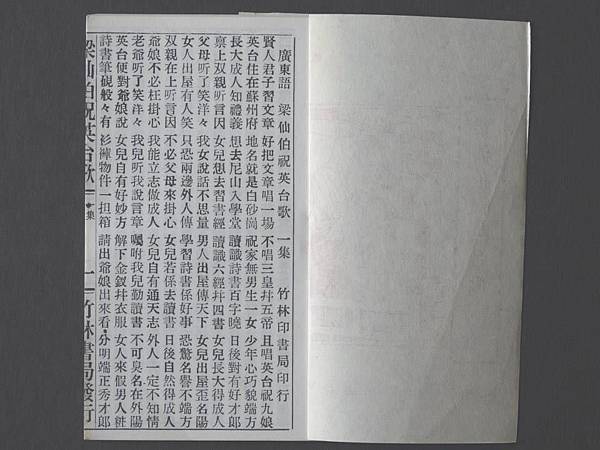 廣東語 梁仙伯祝英台歌 一集 竹林印書局印行
賢人君子習文章 好把文章唱一場 不唱三皇井五帝 且唱英台祝九娘
英台住在蘇州府 地名就是白砂崗 祝家無男生一女 少年心巧貌端方
長大成人知禮義 想去尼山入學堂 讀識詩書百字曉 日後對有好才郎
禀上双親听言因 女兒想去習書經 讀識六經井四書 女兒長大得成人
父母听了笑洋々 我女說話不思量 男人出屋傳天下 女兒出屋歪名陽
女人出屋有人笑 只恐兩邊外人傳 學習詩書係好事 恐驚名譽不端方
双親在上听言因 不必父母來掛心 女兒若係去讀書 日後自然得成人
爺娘不必枉掛心 我能立志做成人 女兒自有通天志 外人一定不知情
老爺听了笑洋々 我兒听我說言章 囑咐我兒勤讀書 不可臭名在外陽
英台便對爺娘說 女兒自有好妙方 解下金釵井衣服 女人來假男人粧
詩書筆硯般々有 衫褲物件一担箱 請出爺娘出來看 分明端正秀才郎
梁仙伯祝英台歌 一集 一 竹林書局發行